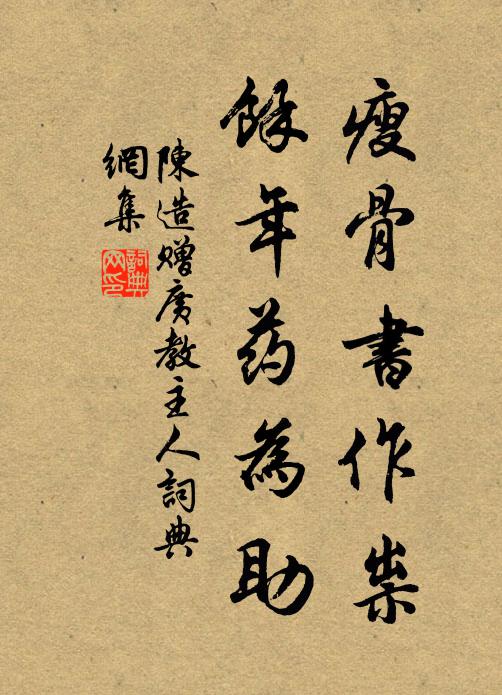 瘦骨書作祟
餘年药為助
陳造贈廣教主人詞典
網集
詞典网印